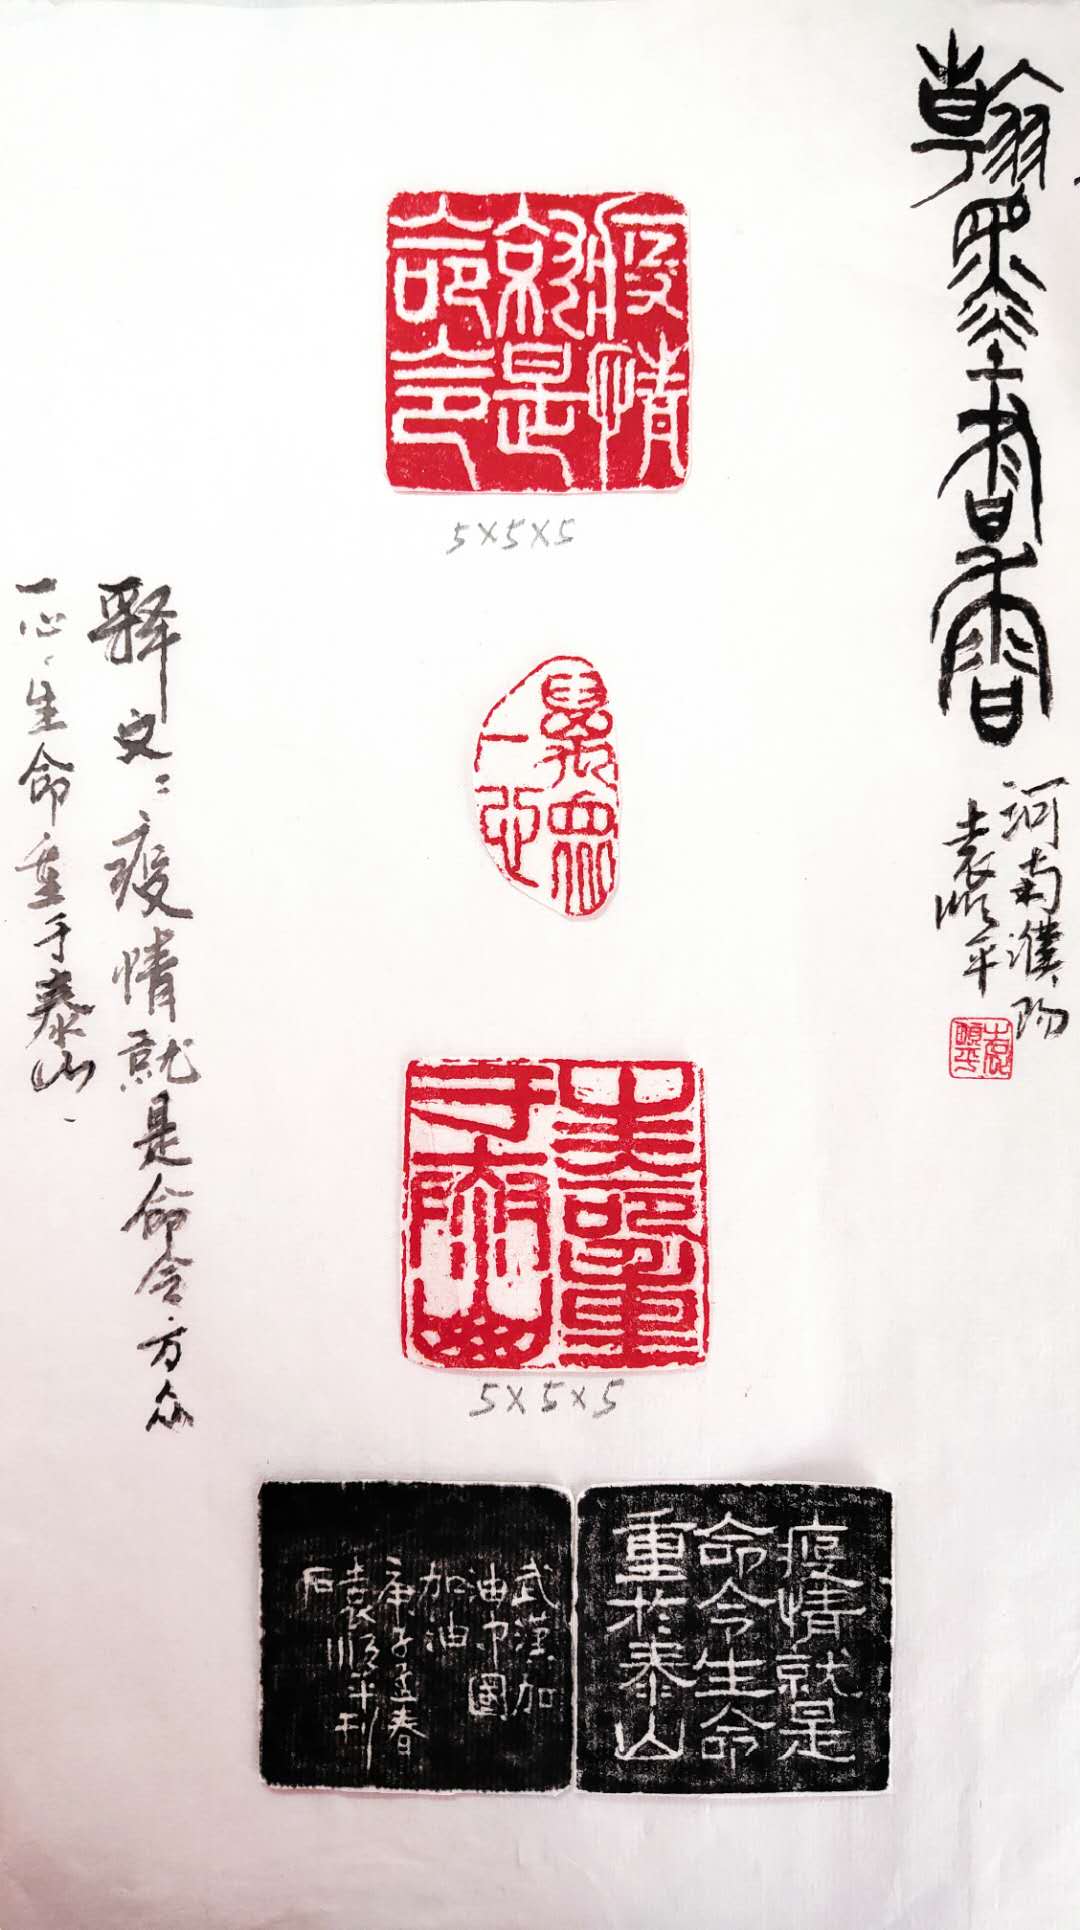 翰墨書香
河南濮阳
袁顺平
袁顺平
疫情
就是
命令
5×5×5
萬衆
一心
生命重
于泰山
5×5×5
疫情就是
命令生命
重於泰山
武漢加
油中國
加油
庚子孟春
袁順平刊
石
释文：疫情就是命令万众
一心、生命重于泰山、